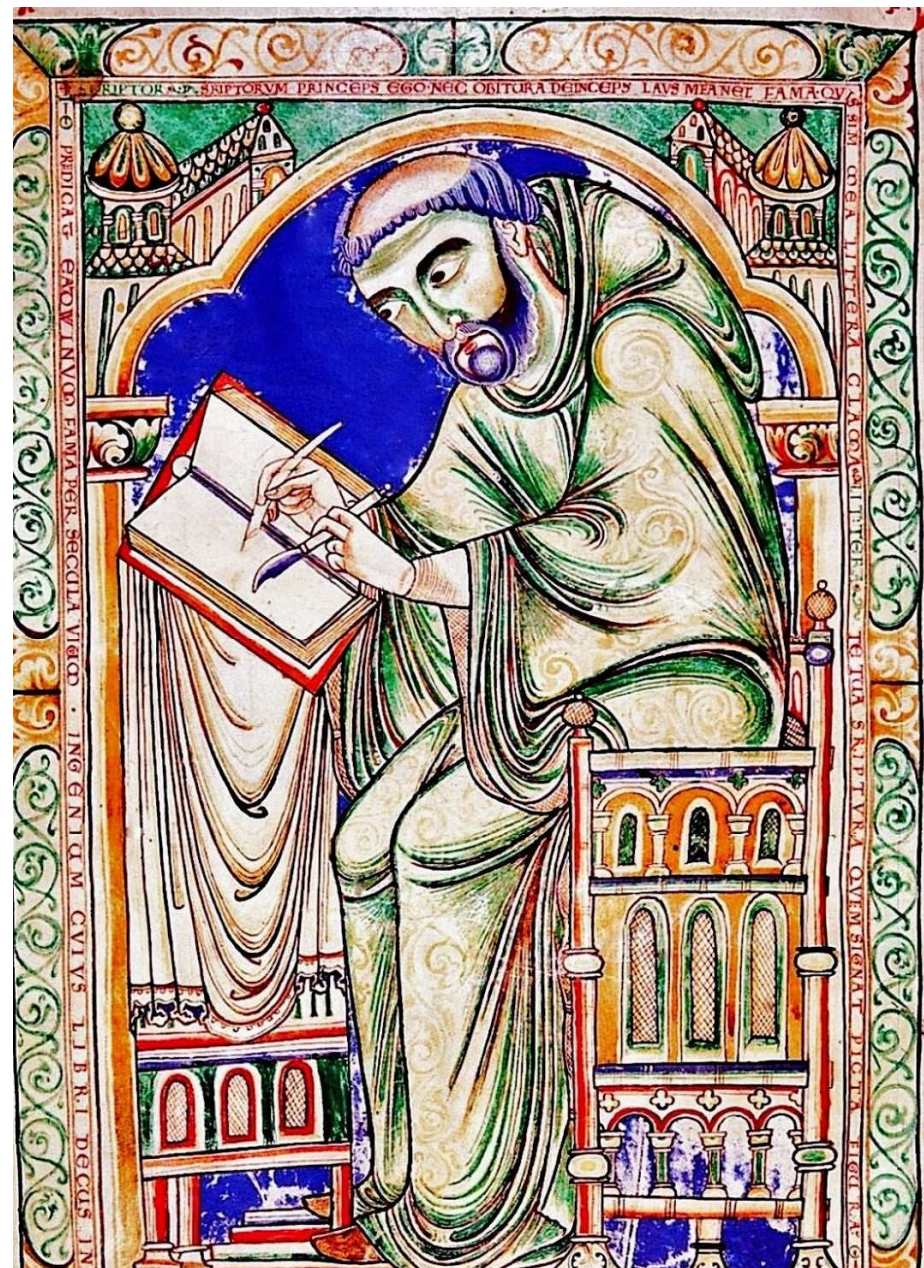 SRIPTORVM PRINCEPS EGO·NEC OBITURA DEINCEPS LAVS MEA NEC FAMA·QVI
SIM MEA LITTERA CLAMA LITTER TE TUA SRIPTVRA QVEM SIGNAT PICTA FIGURA
PREDICAT EADWINVM FAMA PER SECULA VIVUM · INGENIUM CVIVS LIBRI DECUS IN